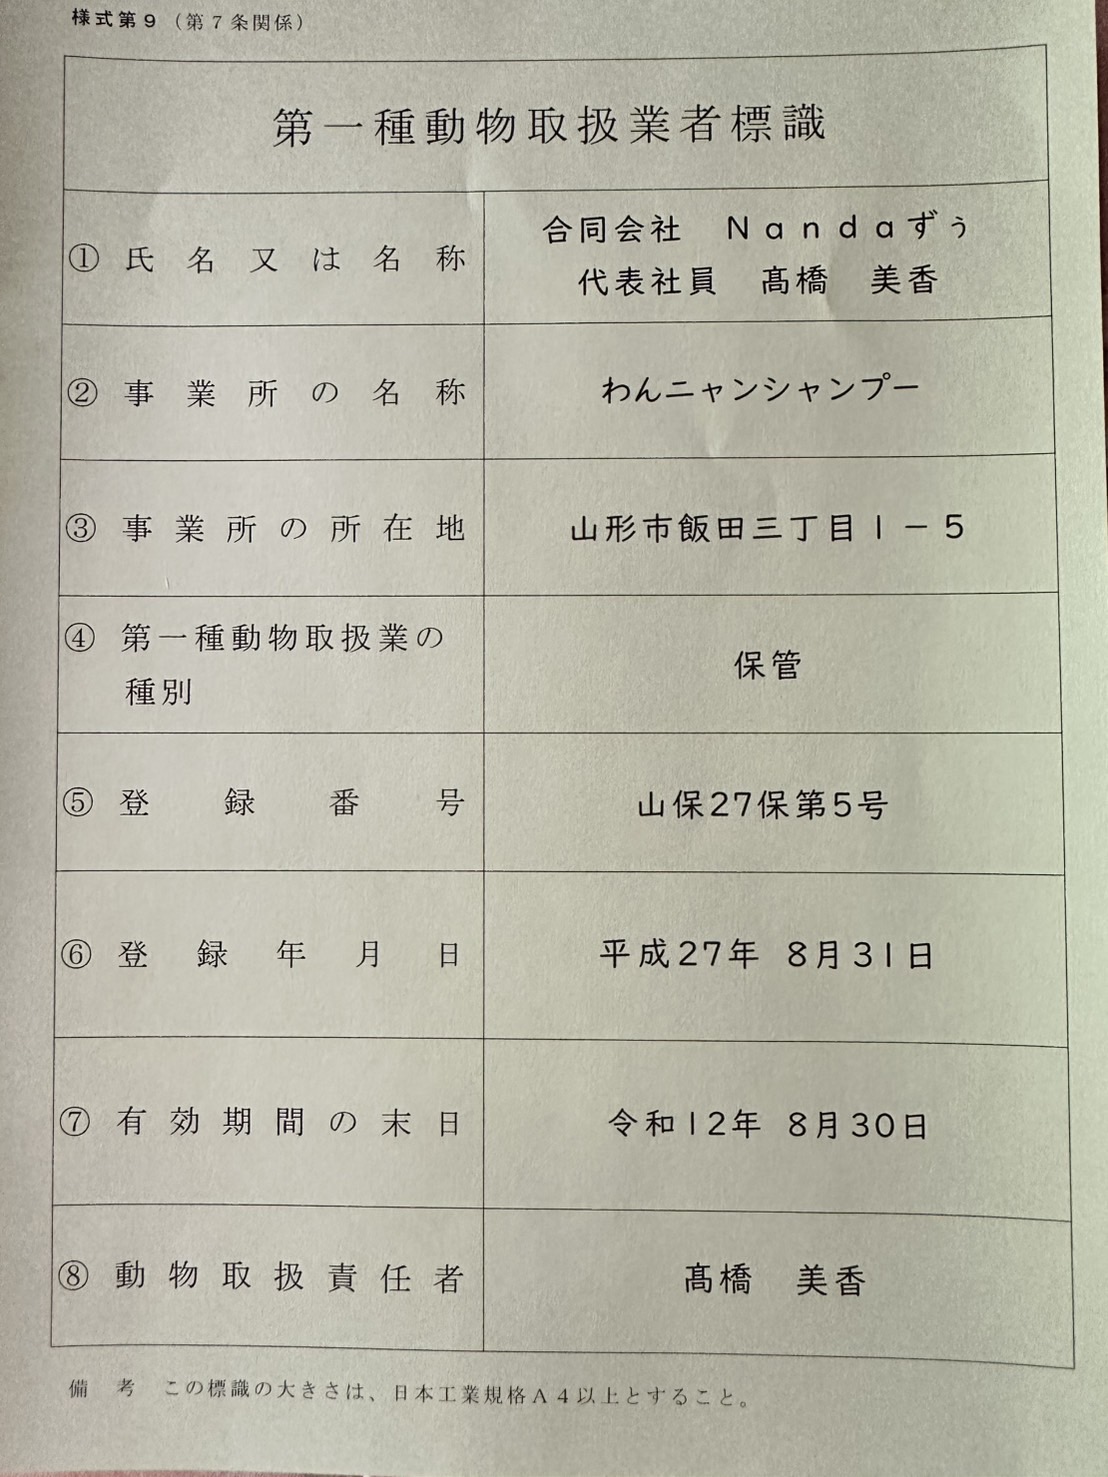 様式第9（第7条関係）
第一種動物取扱業者標識
①氏名又は名称
合同会社　Nandaずぅ
代表社員　髙橋　美香
②事業所の名称
わんニャンシャンプー
③事業所の所在地
山形市飯田三丁目1－5
④第一種動物取扱業の
種別
保管
⑤登録番号
山保27保第5号
⑥登録年月日
平成27年 8月31日
⑦有効期間の末日
令和12年 8月30日
⑧動物取扱責任者
髙橋　美香
備　考　この標識の大きさは、日本工業規格A4以上とすること。